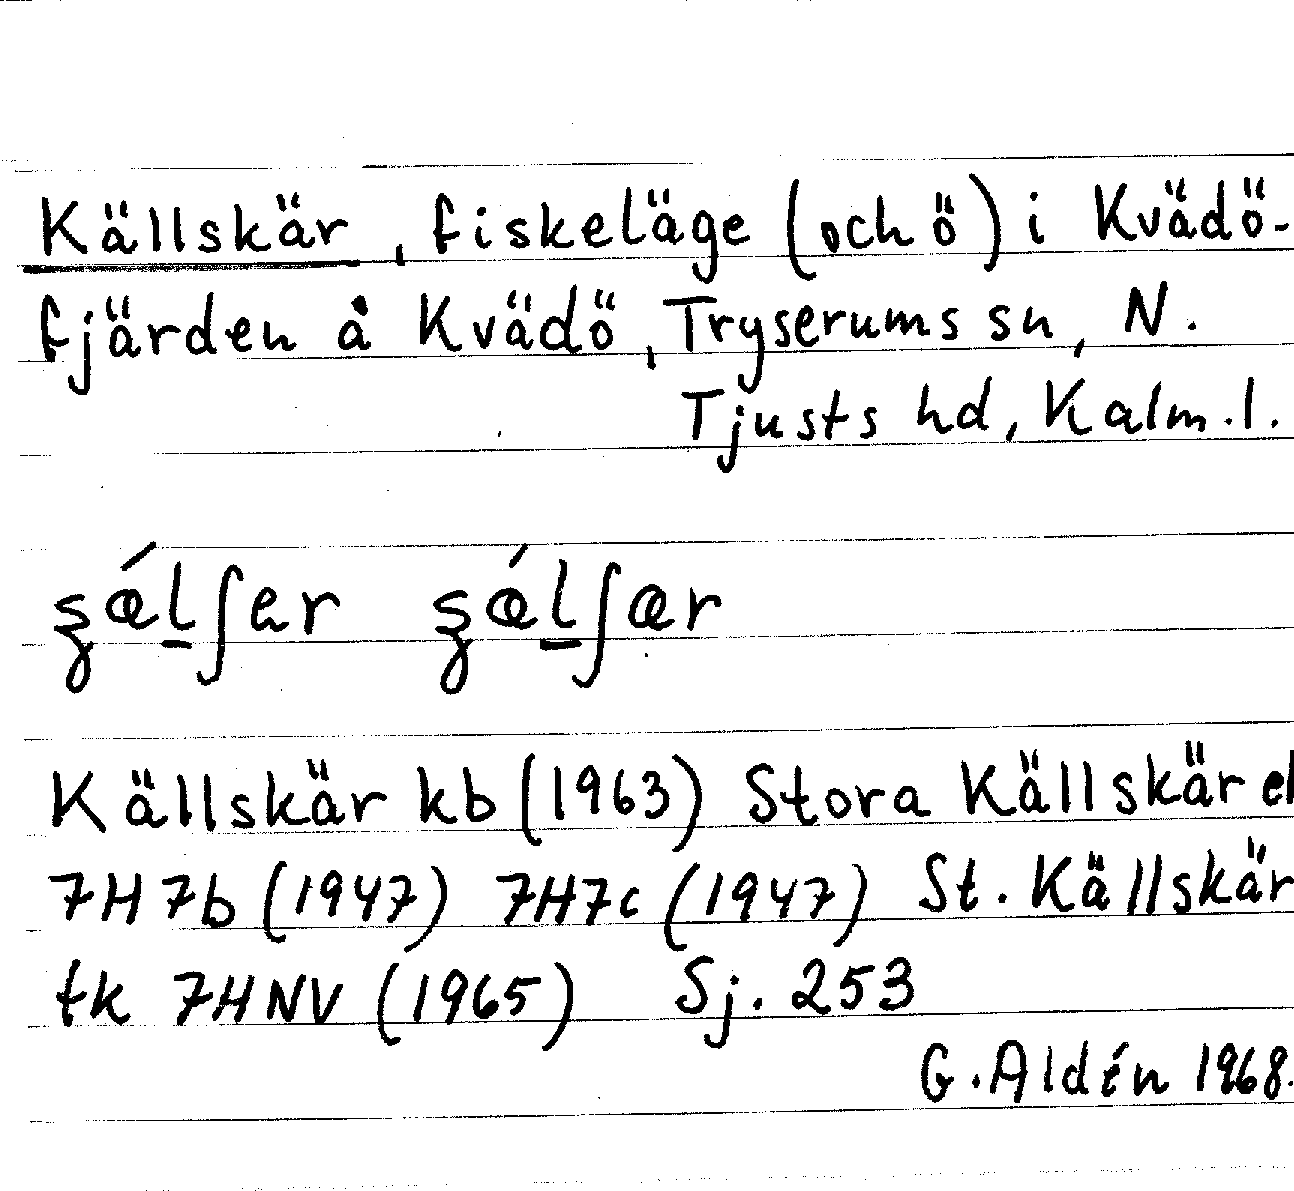 Källskär, fiskeläge (och ö) i Kvädö-
fjärden å Kvädö, Tryserums sn, N.
Tjusts hd, Kalm.l.
Källskär kb (1963) Stora Källskär el
7H7b (1947) 7H7c (1947) St. Källskär
tk 7HNV (1965) Sj. 253
G. Aldén 1968.